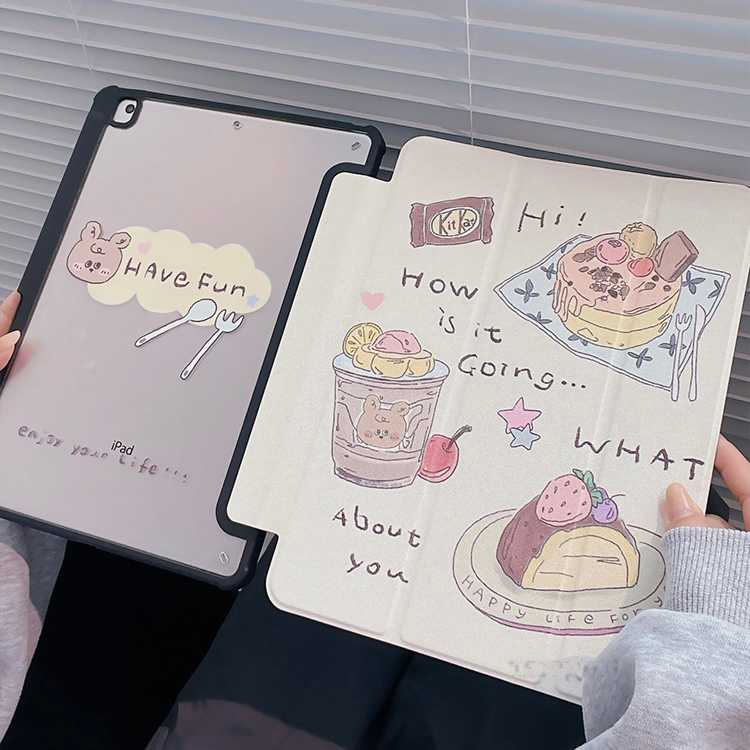 HAVE FUN
iPad
enjoy your Life...
KitKat
Hi!
HOW
is it
Going...
WHAT
About
you
HAPPY LIFE FOR